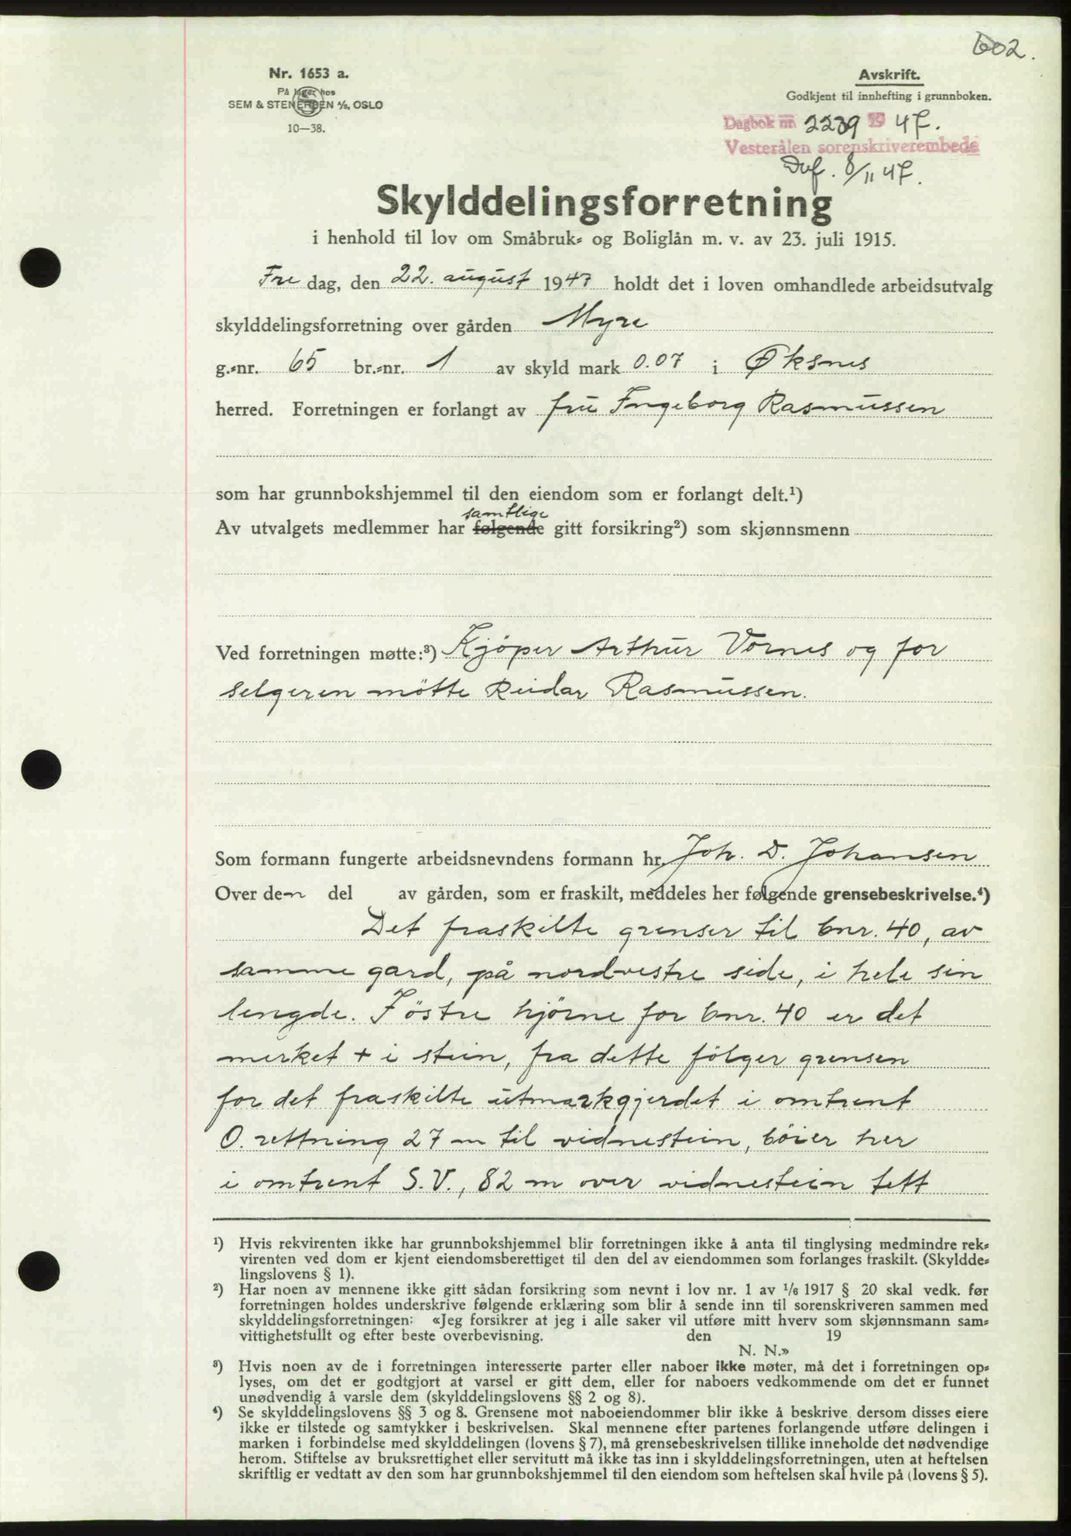 602.
Nr. 1653 a.
På lager hos
SEM & STENERSEN A/S, OSLO
10—38.
Avskrift.
Godkjent til innhefting i grunnboken.
Dagbok nr. 2239 19 47.
Vesterålen sorenskriverembede
8/11 47.
Skylddelingsforretning
i henhold til lov om Småbruk- og Boliglån m. v. av 23. juli 1915.
Fre dag, den 22. august 1947 holdt det i loven omhandlede arbeidsutvalg
skylddelingsforretning over gården Myre
g.-nr. 65 br.-nr. 1 av skyld mark 0.07 i Øksnes
herred. Forretningen er forlangt av fru Ingeborg Rasmussen
som har grunnbokshjemmel til den eiendom som er forlangt delt.¹)
samtlige
Av utvalgets medlemmer har følgende gitt forsikring²) som skjønnsmenn
Ved forretningen møtte:³) Kjöper Arthur Vornes og for
selgeren mötte Reidar Rasmussen.
Som formann fungerte arbeidsnevndens formann hr. Joh. D. Johansen
Over den del av gården, som er fraskilt, meddeles her følgende grensebeskrivelse.⁴)
Det fraskilte grenser til bnr. 40, av
samme gard, på nordvestre side, i hele sin
lengde. Föstre hjörne for bnr. 40 er det
merket + i stein, fra dette fölger grensen
for det fraskilte utmarkgjerdet i omtrent
O. rettning 27 m til vidnestein, böier her
i omtrent S.V., 82 m over vidnestein tett
¹) Hvis rekvirenten ikke har grunnbokshjemmel blir forretningen ikke å anta til tinglysing medmindre rek-
virenten ved dom er kjent eiendomsberettiget til den del av eiendommen som forlanges fraskilt. (Skyldde-
lingslovens § 1).
²) Har noen av mennene ikke gitt sådan forsikring som nevnt i lov nr. 1 av 1/6 1917 § 20 skal vedk. før
forretningen holdes underskrive følgende erklæring som blir å sende inn til sorenskriveren sammen med
skylddelingsforretningen: «Jeg forsikrer at jeg i alle saker vil utføre mitt hverv som skjønnsmann sam-
vittighetsfullt og efter beste overbevisning. den 19
N. N.»
³) Hvis noen av de i forretningen interesserte parter eller naboer ikke møter, må det i forretningen op-
lyses, om det er godtgjort at varsel er gitt dem, eller for naboers vedkommende om det er funnet
unødvendig å varsle dem (skylddelingslovens §§ 2 og 8).
⁴) Se skylddelingslovens §§ 3 og 8. Grensene mot naboeiendommer blir ikke å beskrive dersom disses eiere
ikke er tilstede og samtykker i beskrivelsen. Skal mennene efter partenes forlangende utføre delingen i
marken i forbindelse med skylddelingen (lovens § 7), må grensebeskrivelsen tillike inneholde det nødvendige
herom. Stiftelse av bruksrettighet eller servitutt må ikke tas inn i skylddelingsforretningen, uten at heftelsen
skriftlig er vedtatt av den som har grunnbokshjemmel til den eiendom som heftelsen skal hvile på (lovens § 5).